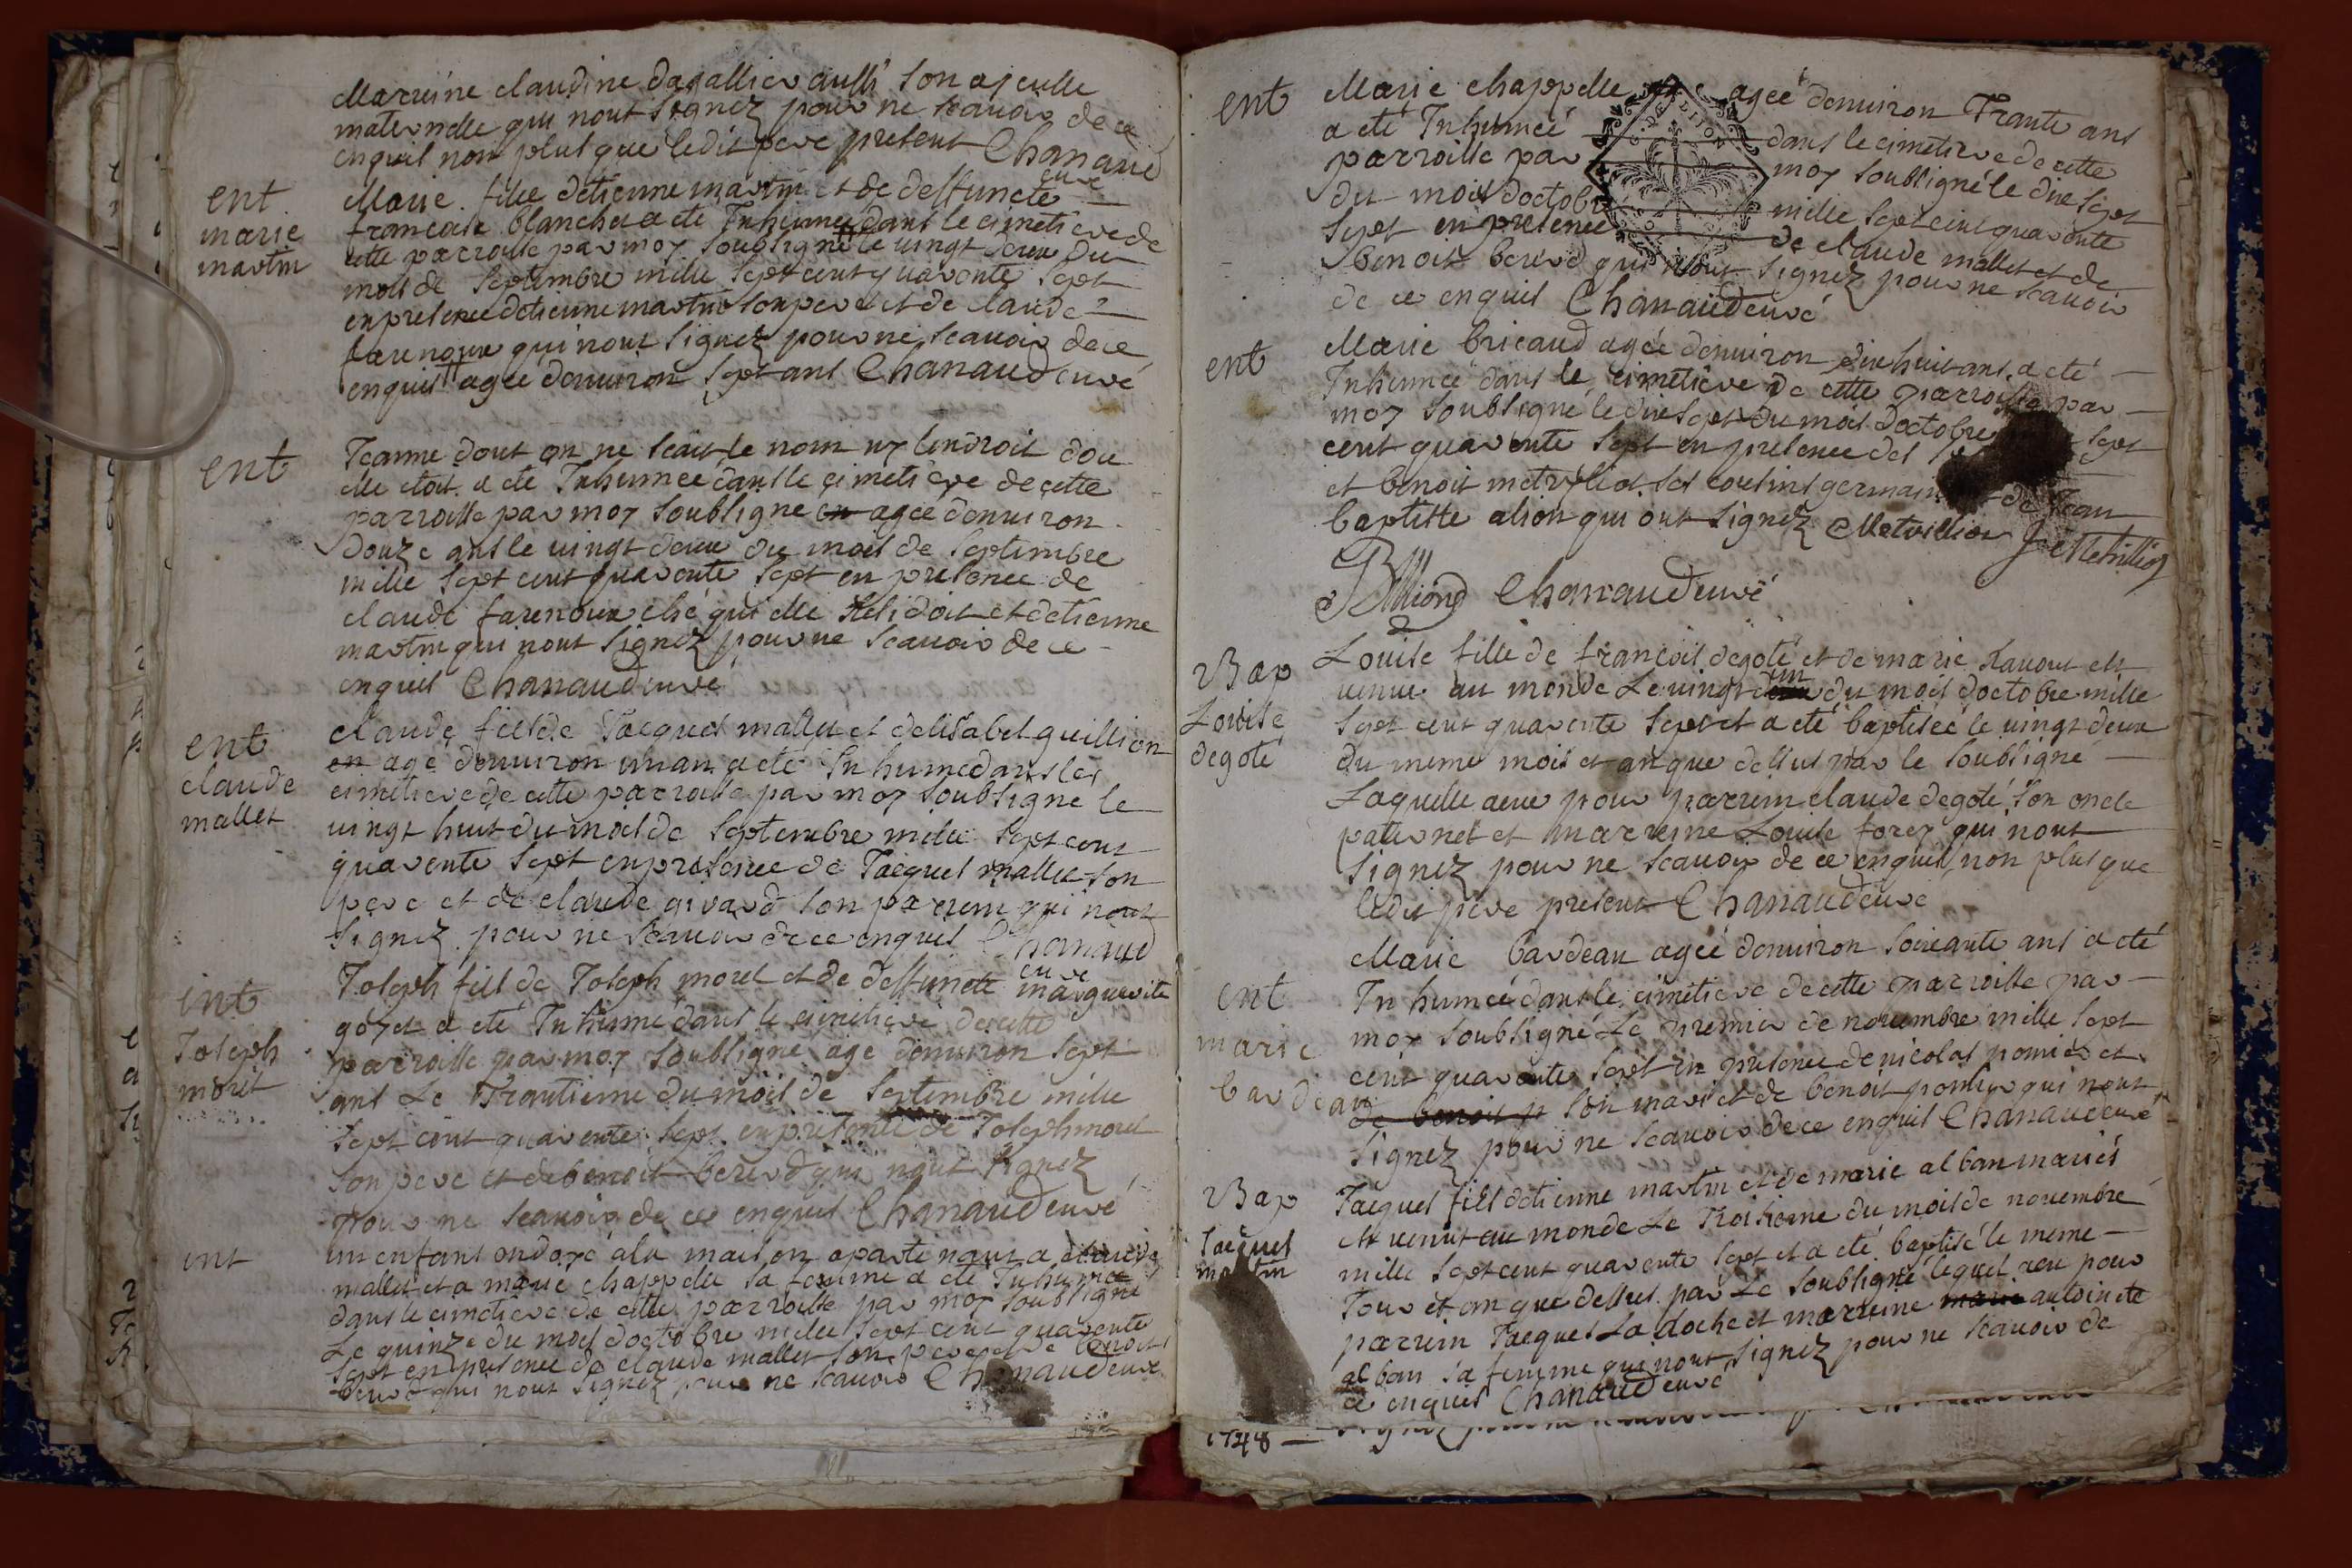 Marreine claudine dagallier aussi son ajeulle
maternelle qui nont signez pour ne scauoir de ce
enquil non plus que ledit pere present Chanaud
curé
ent
marie
martin
Marie fille detienne martin et de deffuncte
francoise blanchet a eté Inhumeé dans le cimetiere de
cette parroisse par moy soubsigné le uingt deux du
mois de septembre mille sept cent quarente sept
en presence detienne martin son pere et de claude
farenoux qui nont signez pour ne scauoir de ce
enquil agée denuiron sept ans Chanaud curé
ent
Jeanne dont on ne scait le nom ny lendroit dou
elle etoit a eté Inhumeé dans le cimetiere de cette
parroisse par moy soubsigné en agée denuiron
douze ans le uingt deux du mois de septembre
mille sept cent quarente sept en presence de
claude farenoux ché qui elle residoit et detienne
martin qui nont signez pour ne scauoir de ce
enquil Chanaud curé
ent
claude
mallet
claude fils de Jacques mallet et delisabet guillion
en agé denuiron un an a eté Inhumé dans le
cimetiere de cette parroisse par moy soubsigné le
uingt huit du mois de septembre mille sept cent
quarente sept en presence de Jacques mallet son
pere et de claude girard son parrein qui nont
signez pour ne scauoir de ce enquil Chanaud
curé
ent
Joseph
moret
Joseph fils de Joseph moret et de deffuncte marguerite
goyet a eté Inhumé dans le cimetiere de cette
parroisse par moy soubsigné agé denuiron sept
ans Le Trantieme du mois de septembre mille
sept cent quarente sept en presence de Joseph moret
son pere et de benoit bererd qui nont signez
pour ne scauoir de ce enquil Chanaud curé
ent
un enfant ondoyé a la maison apartenant a claude
mallet et a marie chappelle sa femme a eté Inhumé
dans le cimetiere de cette parroisse par moy soubsigné
Le quinze du mois doctobre mille sept cent quarente
sept en presence de claude mallet son pere et de benoit
berard qui nont signez pour ne scauoir Chanaud curé
ent
Marie chappelle agée denuiron Trante ans
a eté Inhumeé dans le cimetiere de cette
parroisse par moy soubsigné le dix sept
du mois doctobre mille sept cent quarente
sept en presence de claude mallet et de
benoit berard qui nont signez pour ne scauoir
de ce enquil Chanaud curé
ent
Marie bricaud agée denuiron dix huit ans a eté
Inhumeé dans le cimetiere de cette parroisse par
moy soubsigné le dix sept du mois doctobre sept
cent quarente sept en presence des
et benoit metrillot ses cousins germains et de Jean
baptiste alion qui ont signez
Chanaud curé
Bap
Louise
degoté
Louise fille de françois degoté et de marie Rauout est
uenue au monde Le uingt un du mois doctobre mille
sept cent quarente sept et a eté baptiseé le uingt deux
du meme mois et an que dessus par le soubsigné
Laquelle a eue pour parrein claude degoté son oncle
paternel et marreine Louise forez qui nont
signez pour ne scauoir de ce enquil non plus que
ledit pere present Chanaud curé
ent
marie
bardeau
Marie bardeau agée denuiron soixante ans a eté
Inhumeé dans le cimetiere de cette parroisse par
moy soubsigné Le premier de nouembre mille sept
cent quarente sept en presence de nicolas pomier et
de benoit p son mari et de benoit pomier qui nont
signez pour ne scauoir de ce enquil Chanaud curé
Bap
Jacques
martin
Jacques fils detienne martin et de marie alban mariés
est uenut au monde Le Troisieme du mois de nouembre
mille sept cent quarente sept et a eté baptisé le meme
Jour et an que dessus par Le soubsigné lequel a eu pour
parrein Jacques La doche et marreine marie antoinete
alban sa femme qui nont signez pour ne scauoir de
ce enquil Chanaud curé
1748